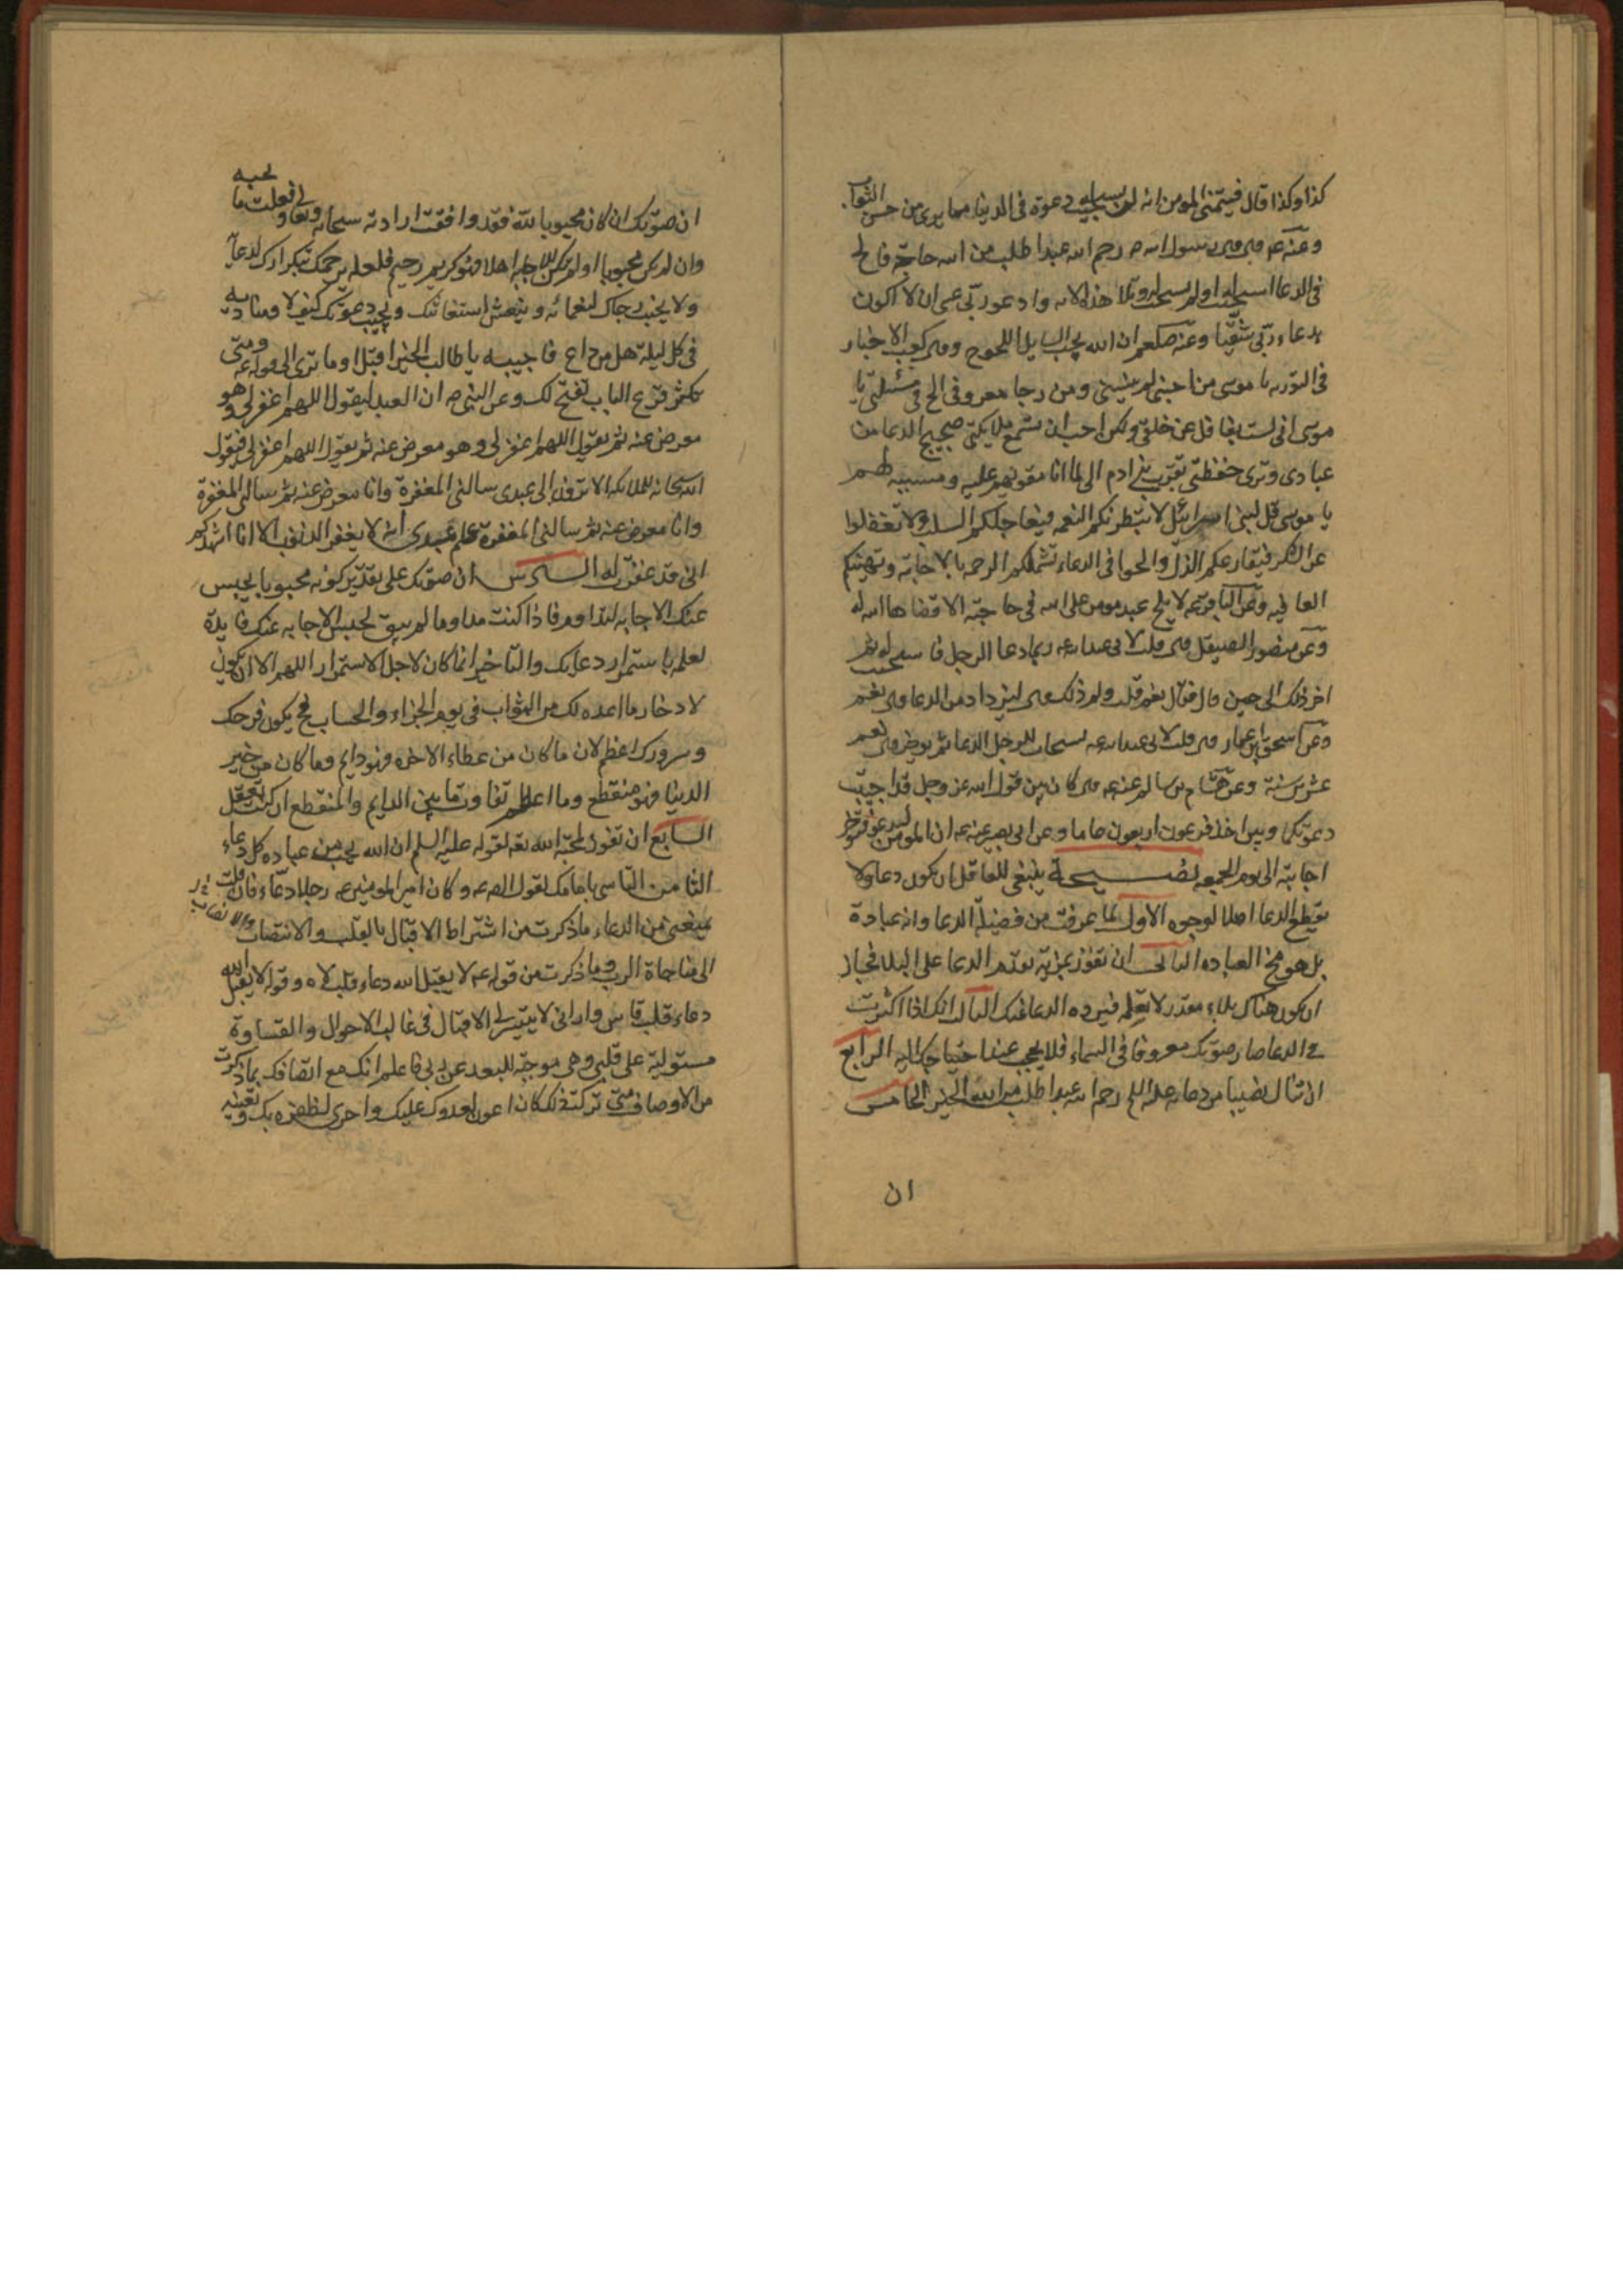 كذا وكذا قال فيتمنى المومن انه لم يستجب له دعوة فى الدينا مما يرى من حسن الثواب
وعنه عه قال قال رسول الله ص رحم الله عبدا طلب من الله حاجة فالح
فى الدعا استجيب له او لم يستجب له وتلا هذه الايه وادعو ربى عسى ان لا اكون
بدعاء ربى شقيا وعنه صلعم ان الله يحب السايل اللحوح وقال كعب الاخبار
فى التوريه يا موسى من احبنى لم ينسنى ومن رجا معروفى الح فى مسئلتى يا
موسى انى لست بغافل عن خلقى ولكن احب ان تسمع ملايكتى ضجيج الدعا من
عبادى وترى حفظتى تقرب بنى ادم الى بما انا مقويهم عليه ومسببه لهم
يا موسى قل لبنى اسرائيل لا تبطرنكم النعمه فيعاجلكم السلب ولا تغفلوا
عن الشكر فيقارعكم الذل والحوا فى الدعاء تشملكم الرحمه بالاجابة وتهنيكم
العافيه وعن الباقر عه لا يلح عبد مومن على الله فى حاجته الا قضاها الله له
وعن منصور الصيقل قال قلت لابى عبد الله عه ربما دعا الرجل فاستجيب له ثم
اخر ذلك الى حين قال فقال نعم قلت ولم ذلك قال ليزداد من الدعا قال نعم
وعن اسحق بن عمار قال قلت لابى عبد الله عه يستجاب للرجل الدعا ثم يوخر قال نعم
عشرين سنة وعن هشام بن سالم عنه عه قال كان بين قول الله عز وجل قد اجيبت
دعوتكما وبين اخذ فرعون اربعون عاما وعن ابى بصير عنه عه ان المومن ليدعو فتوخر
اجابته الى يوم الجمعه نصيحة ينبغى للعاقل ان يكون دعاؤلا
يقطع الدعا اصلا لوجوه الاول لما عرفت من فضيلة الدعا وانه عبادة
بل هو مخ العباده الثانى ان تفوز بمزية تقدم الدعا على البلا فجاز
ان يكون هناك بلاء مقدر لا تعلمه فيرده الدعا عنك الثالث انك اذا اكثرت
فى الدعا صار صوتك معروفا فى السماء فلا يحجب عند احتياجك اليه الرابع
ان تنال نصيبا من دعايه عليه السلم رحم الله عبدا طلب من الله الخير الخامس
ان
ان صوتك ان كان محبوبا لله فقد وافقت ارادته سبحانه وتعالى وفعلت ما يحبه
وان لم يكن محبوبا او لم تكن للاجابة اهلا فهو كريم رحيم فلعله يرحمك بتكرارك لدعائه
ولا يخيب رجاك لنعمائه وينعش استغاثتك ويجيب دعوتك كيف لا ومناديه
فى كل ليلة هل من داع فاجيبه يا طالب الخير اقبل اوما ترى الى قوله عه ومتى
تكثر قرع الباب يفتح لك وعن النبى ص ان العبد ليقول اللهم اغفر لى وهو
معرض عنه ثم يقول اللهم اغفر لى وهو معرض عنه ثم يقول اللهم اغفر لى فيقول
الله سبحانه للملايكه الا ترون الى عبدى سالنى المغفرة وانا معرض عنه ثم سالنى المغفرة
وانا معرض عنه ثم سالنى المغفرة علم عبدى انه لا يغفر الذنوب الا انا اشهدكم
انى قد غفرت له السادس ان صوتك على تقدير كونه محبوبا يحبس
عنك الاجابه لتداوم فاذا كنت مداوما لم يبق لحبس الاجابه عنك فايدة
لعلمه باستمرار دعايك والتاخير انما كان لاجل الاستمرار اللهم الا ان يكون
لادخار ما اعده لك من الثواب فى يوم الجزاء والحساب فح يكون فرحك
وسرورك اعظم لان ما كان من عطاء الاخره فهو دايم وما كان من خير
الدينا فهو منقطع وما اعظم تفاوت ما بين الدايم والمنقطع ان كنت تعقل
السابع ان تفوز بمحبة الله تعه لقوله عليه السلم ان الله يحب من عباده كل دعاء
الثامن التاسى بامامك لقول الصه عه وكان امير المومنين عه رجلا دعاء فان قلت
يمنعنى من الدعاء ما ذكرت من اشتراط الاقبال بالقلب والانتصاب
الى مناجاة الرب وما ذكرت من قوله عه لا يقبل الله دعاء قلب لاه وقوله لا يقبل الله
دعاء قلب قاس وارانى لا يتيسر لى الاقبال فى غالب الاحوال والقساوة
مستولية على قلبى وهى موجبة للبعد عن ربى فاعلم انك مع اتصافك بما ذكرت
من الاوصاف متى تركت ذلك كان اعون لعدوك عليك واحرى لظفره بك وتعينه